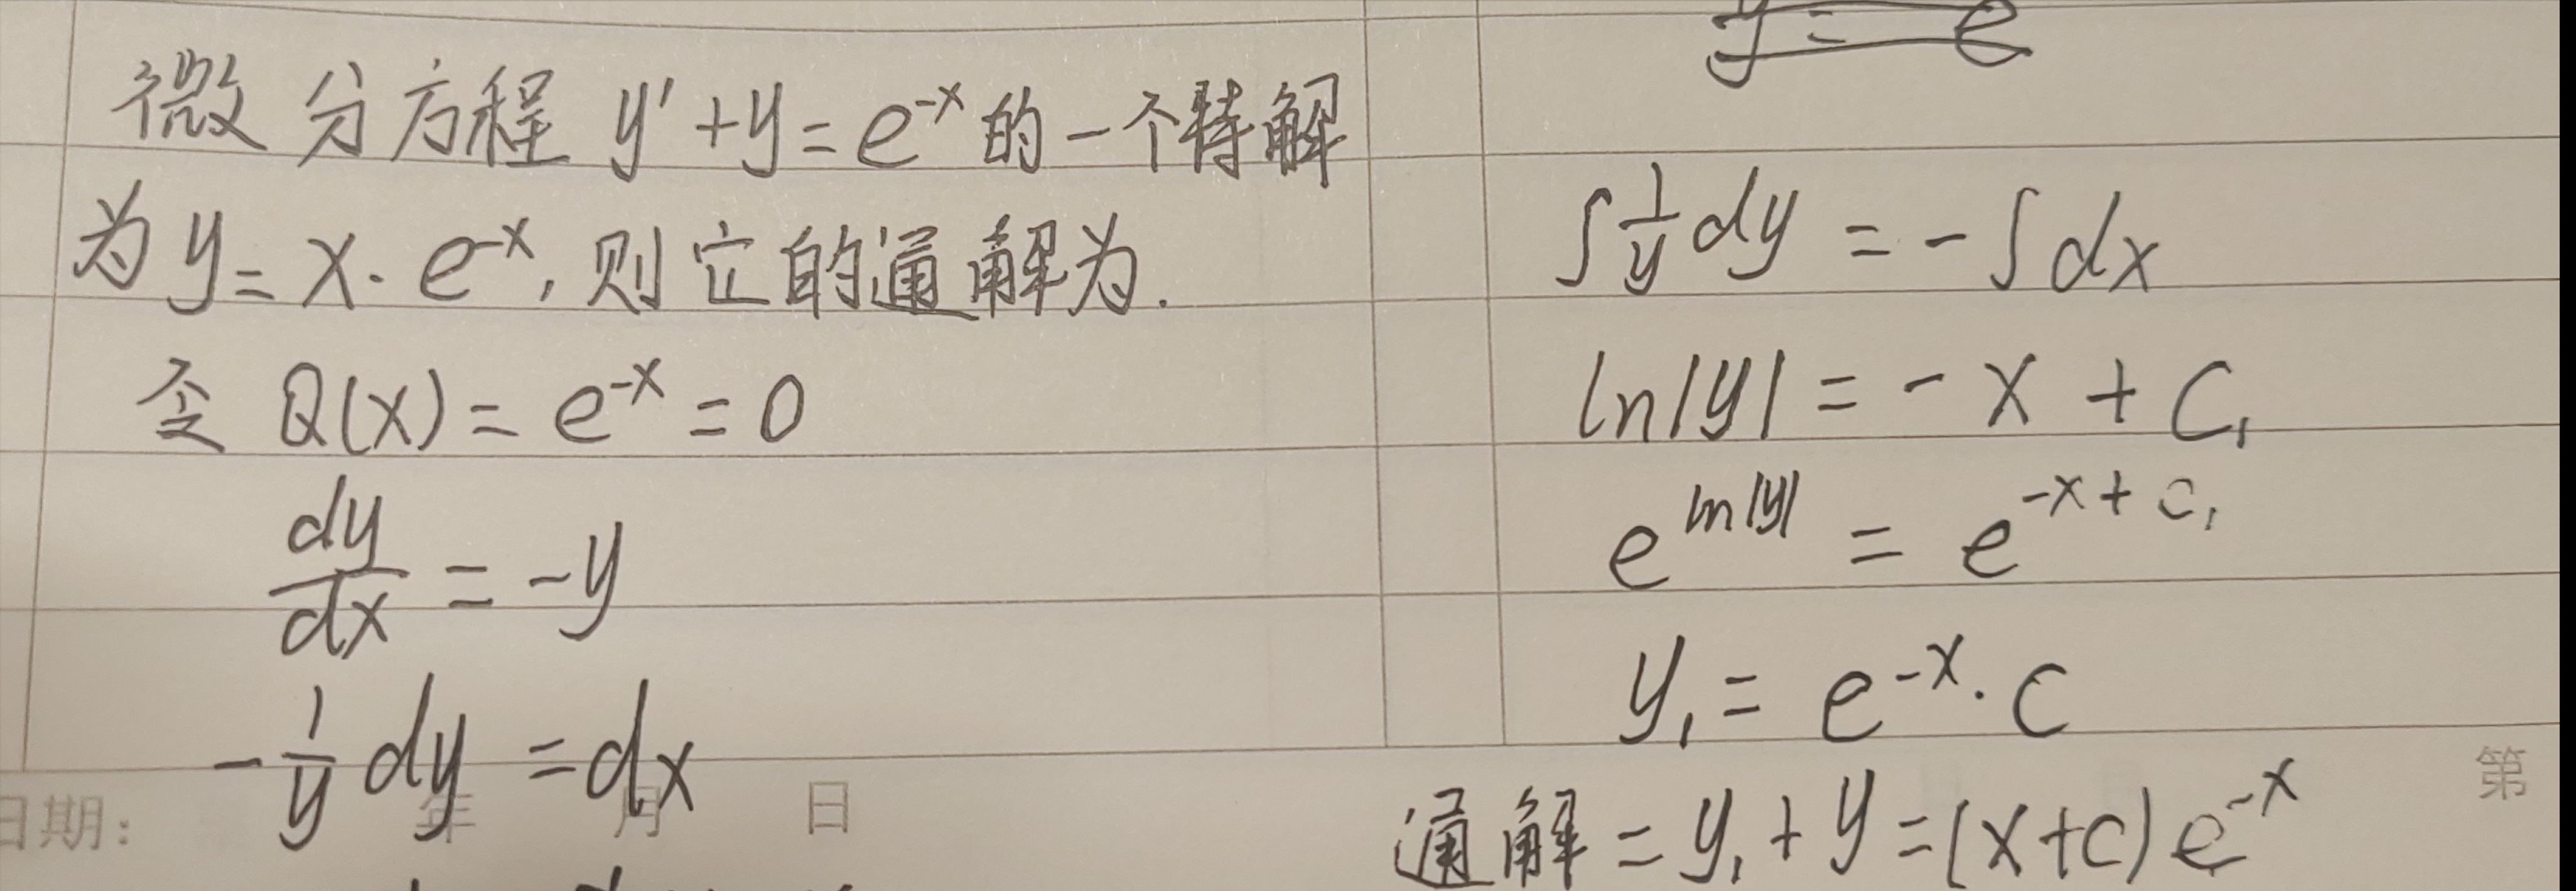 微分方程 y' + y = e^{-x} 的一个特解
为 y = x · e^{-x}, 则它的通解为.
令 Q(x) = e^{-x} = 0
dy/dx = -y
-1/y dy = dx
日期: 年 月 日
∫ 1/y dy = -∫ dx
ln|y| = -x + C₁
e^{ln|y|} = e^{-x + C₁}
y₁ = e^{-x} · C
第
通解 = y₁ + y = (x + C) e^{-x}